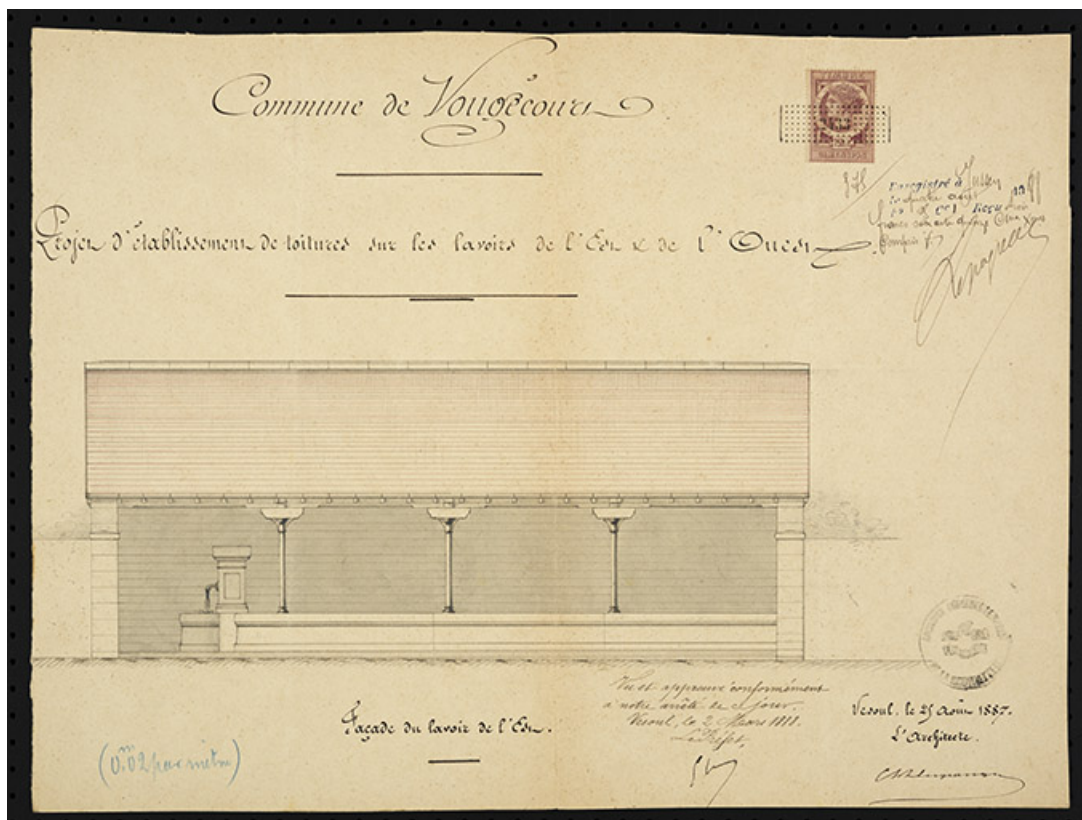 Commune de Vougécourt
Projet d'établissement de toitures sur les lavoirs de l'Est & de l'Ouest.
Enregistré à Jussey
Reçu
Façade du lavoir de l'Est.
(0.m02 par mètre)
Vu et approuvé conformément
à notre arrêté de ce jour.
Vesoul, le 2 Mars 1888.
Le Préfet,
Vesoul, le 25 Août 1887.
L'Architecte.